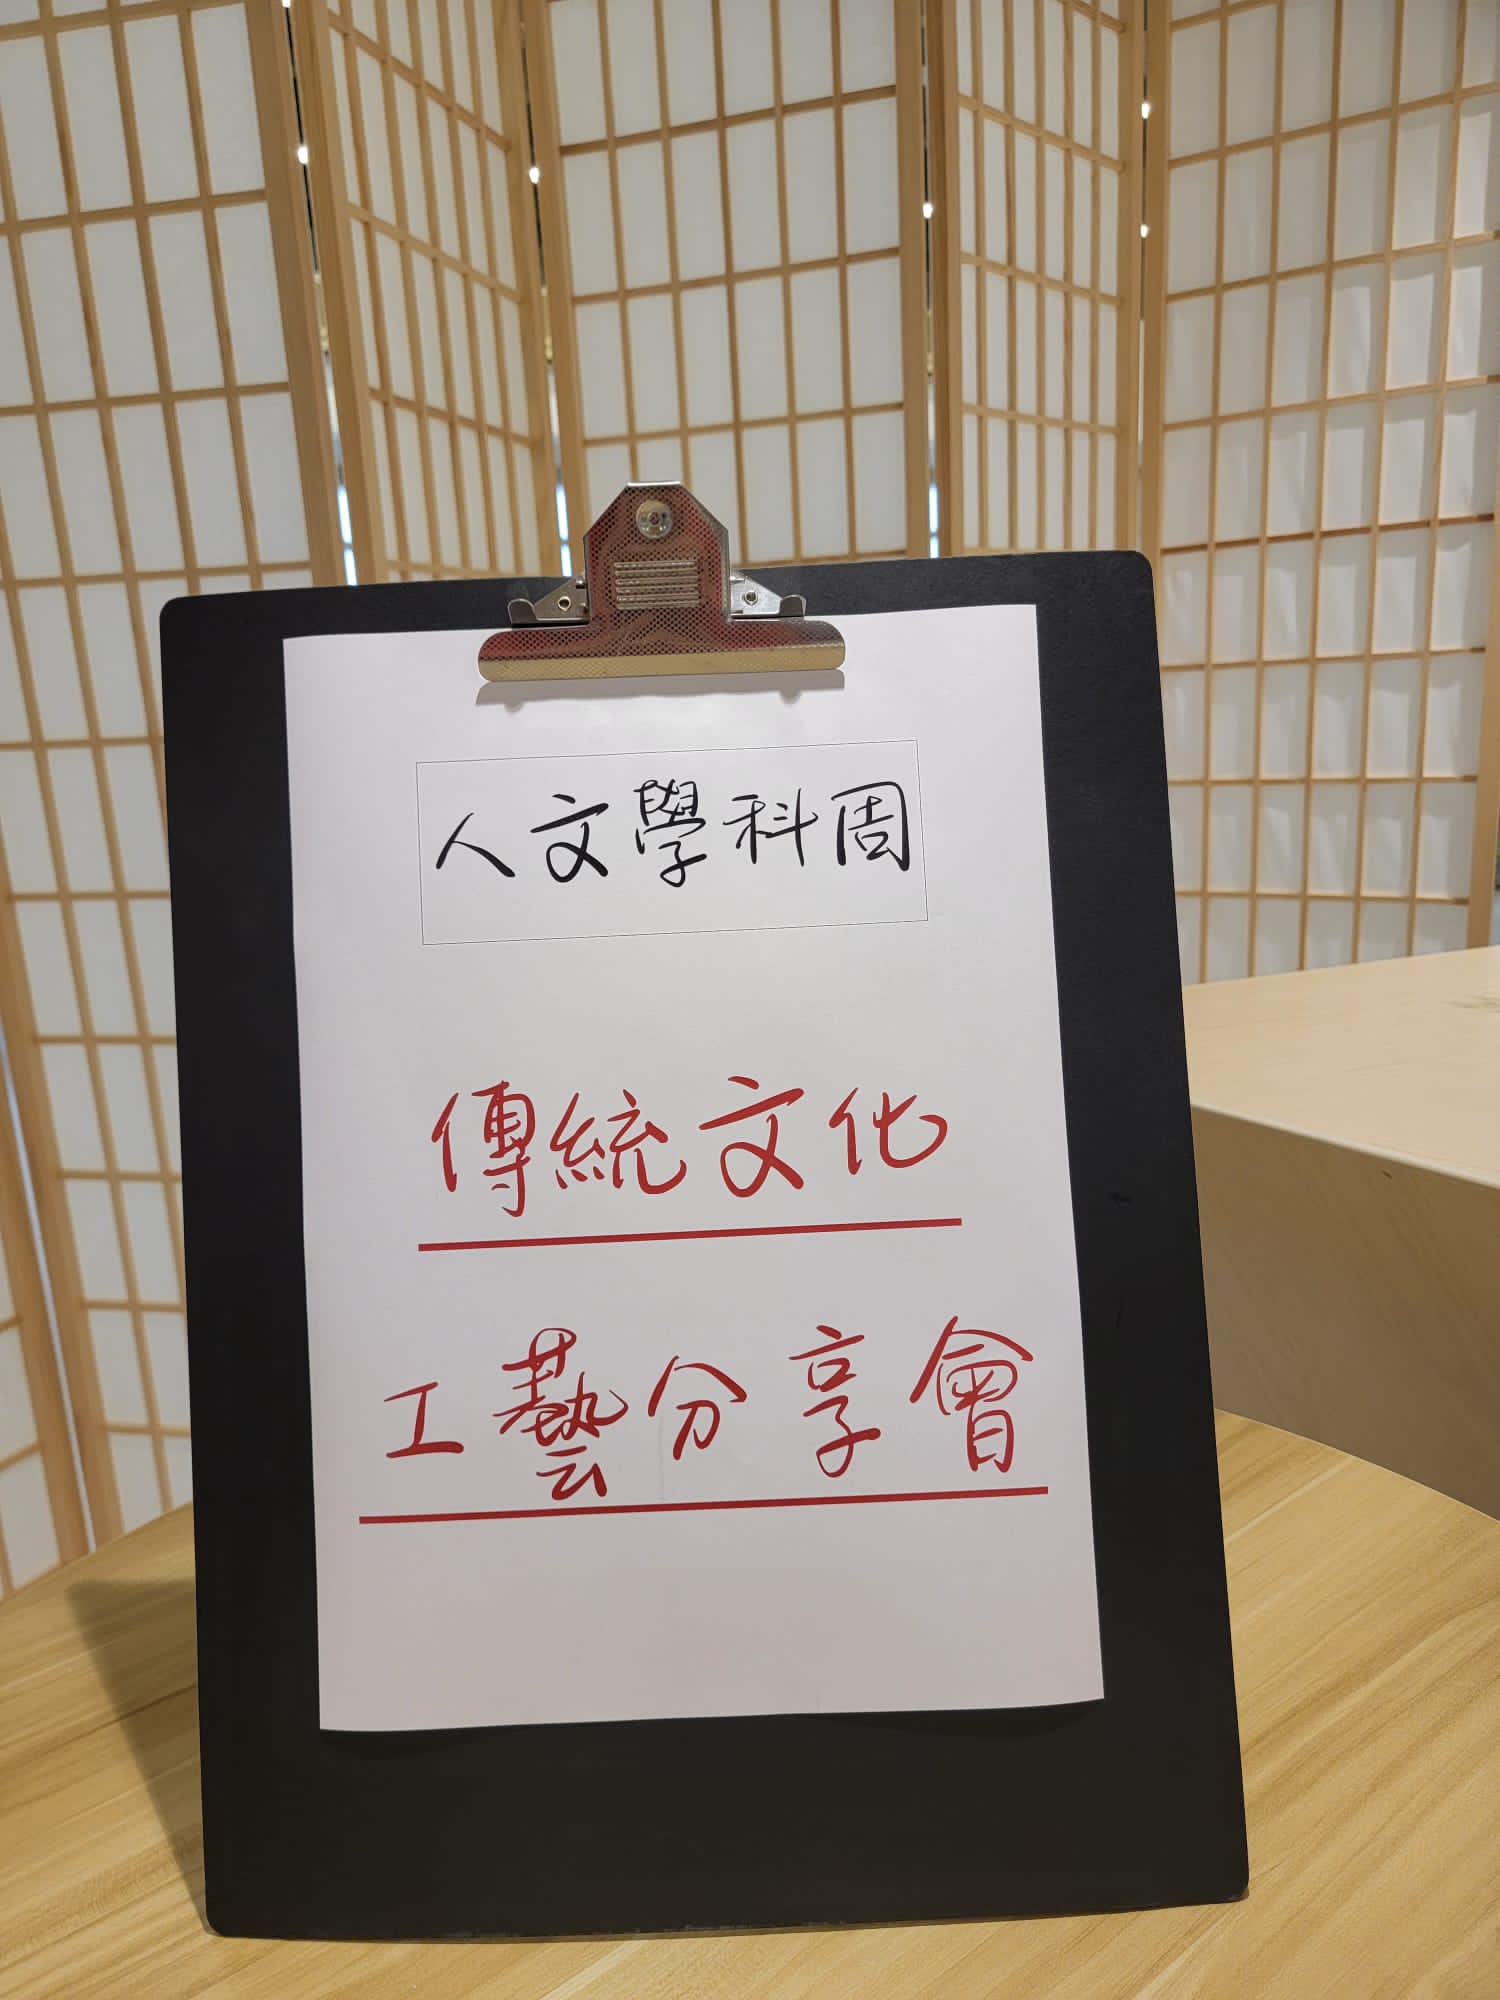 人文學科周
傳統文化
工藝分享會